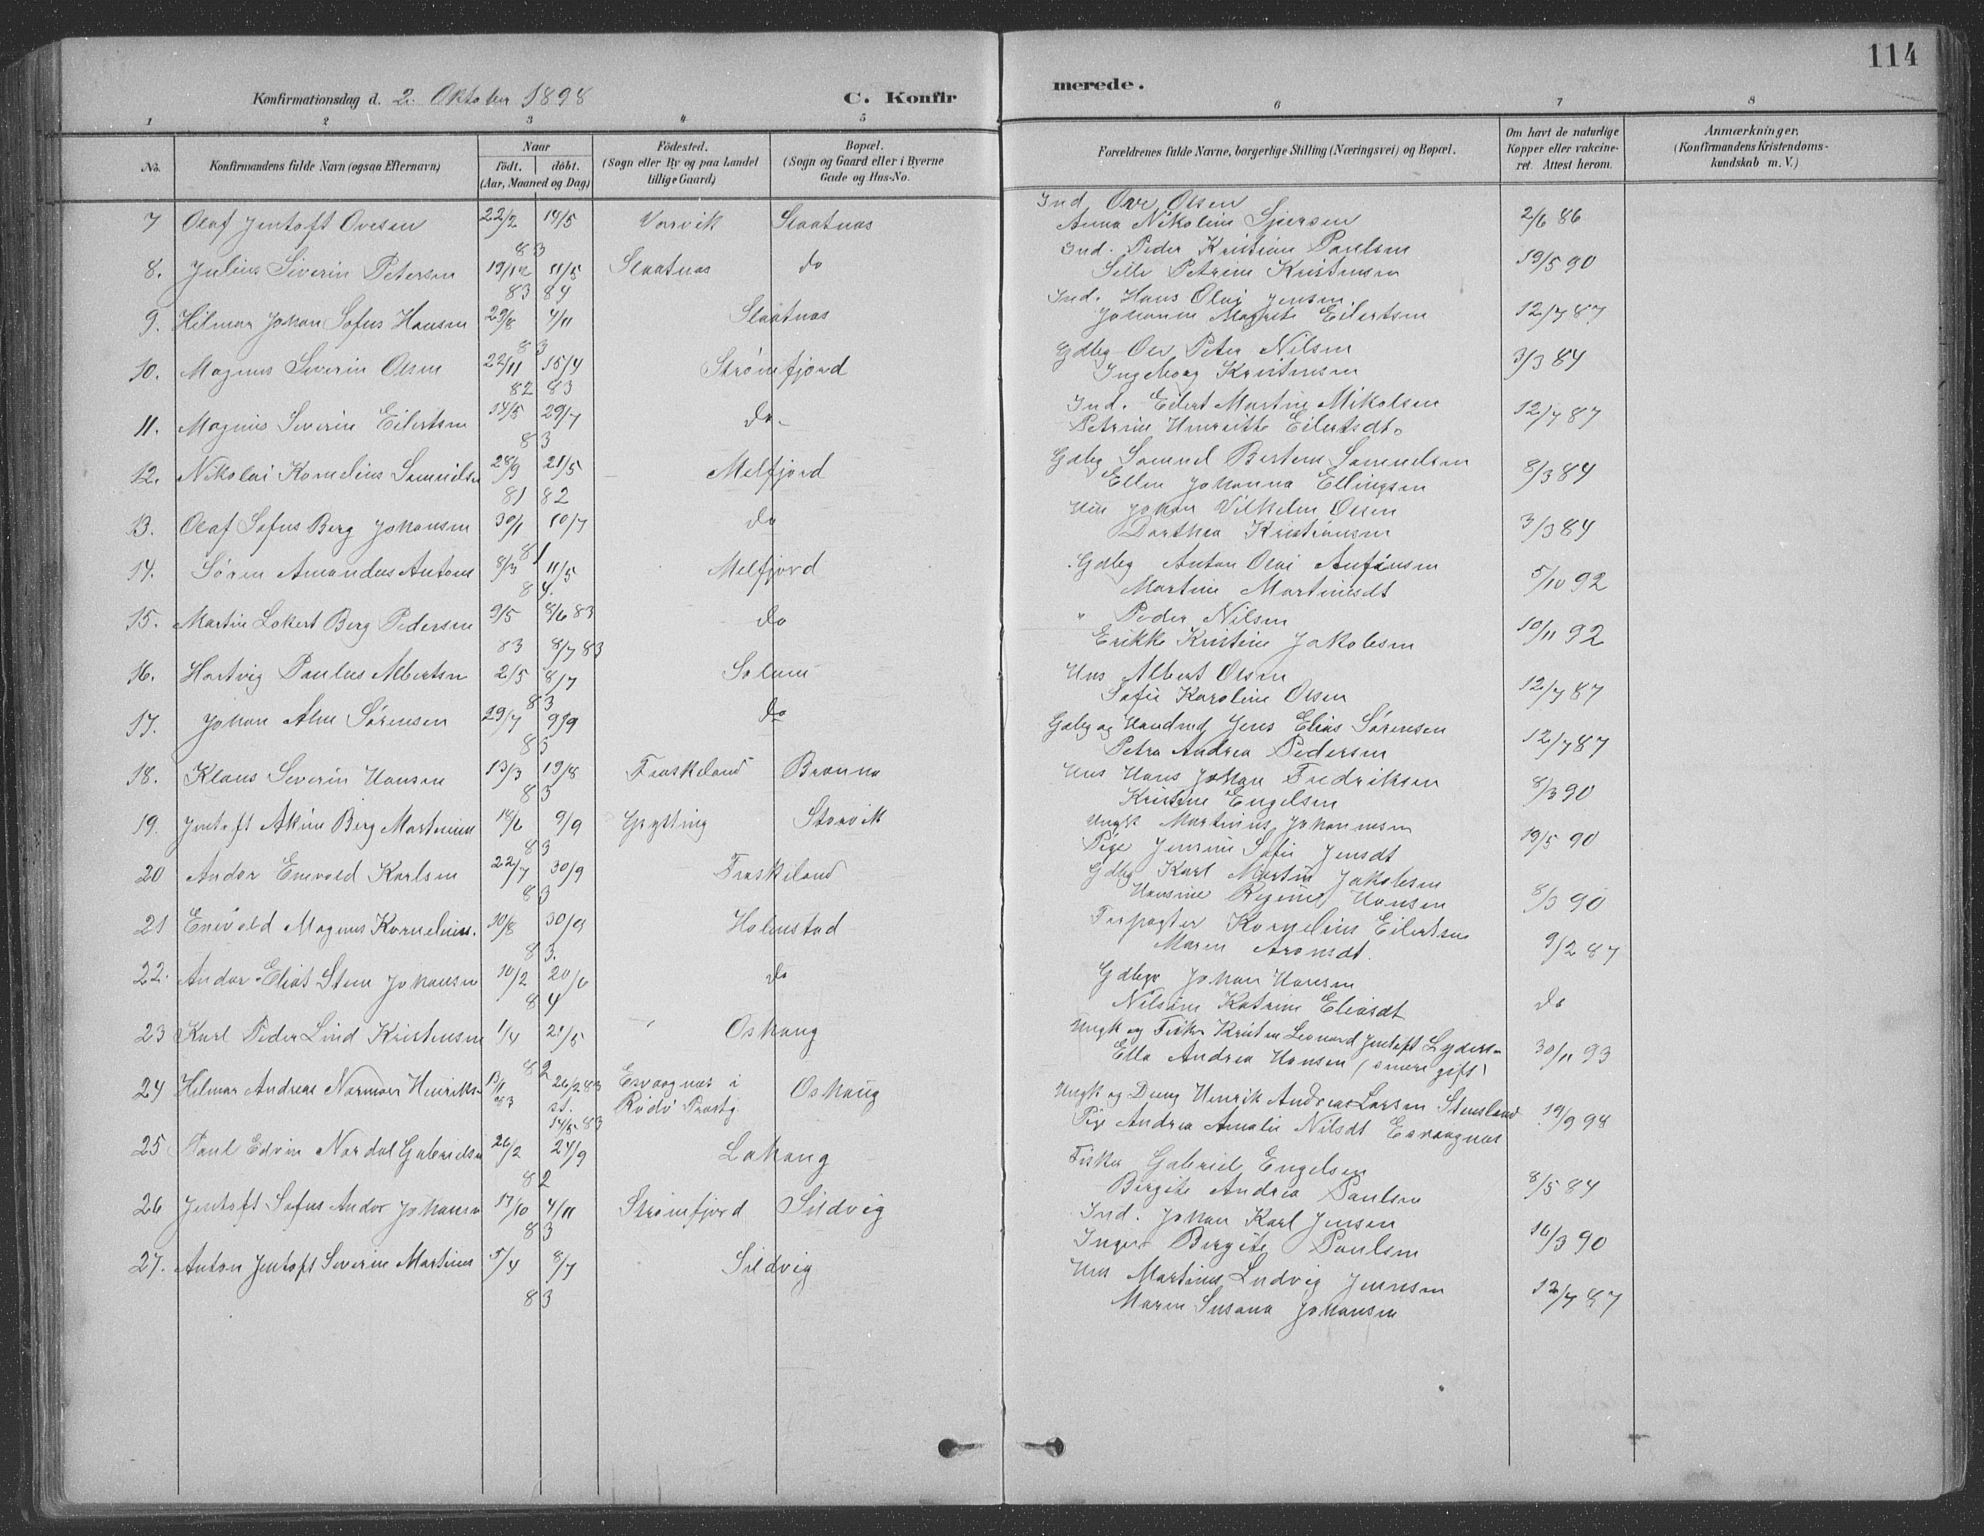 114
Konfirmationsdag d. 2. Oktober 1898 C. Konfirmerede.
1 2 3 4 5 6 7 8
No. Konfirmandens fulde Navn (ogsaa Efternavn) Naar født. døbt. (Aar, Maaned og Dag) Fødested. (Sogn eller By og paa Landet tillige Gaard) Bopæl. (Sogn og Gaard eller i Byerne Gade og Hus-No. Forældrenes fulde Navne, borgerlige Stilling (Næringsvei) og Bopæl. Om havt de naturlige Kopper eller vakcineret. Attest herom. Anmærkninger. (Konfirmandens Kristendomskundskab m. V.)
7 Olaf Jentoft Ovesen 22/2 14/5 83 Vorvik Slaatnas Ind. Ove Olsen 2/6 86
Anna Nikoline
8. Julius Siverin Petersen 19/12 83 11/5 84 Slaatnas do Ind. Peder Kristian Paulsen 19/5 90
Sille Petrine Kristensen
9. Hilmar Johan Sofus Hansen 29/8 4/11 83 Slaatnas Ind. Hans Olai Jensen 12/7 87
Johanna Magrete Eilertsen
10. Magnus Severin Olsen 22/11 82 15/4 83 Strømfjord Gdbrg Ole Peter Nilsen 3/3 84
Ingeborg Kristensen
11. Magnus Severin Eilertsen 14/5 29/7 83 do Ind. Eilert Martin Mikalsen 12/7 87
Petrine Henriette Eilertsdt.
12. Nikolai Kornelius Samuelsen 28/9 81 21/5 82 Melfjord Gdbrg Samuel Samuelsen 8/3 84
Ellen Johanna Ellingsen
13. Olaf Sofus Berg Johansen 30/1 10/7 81 do Hus Johan Vilhelm Olsen 3/3 84
Dorthea Kristiansen
14. Søren Amandus Antons 8/3 11/5 84. Melfjord Gdbrg Anton Olai Anfinsen 5/10 92
Martine Martinusdt
15. Martin Lokert Berg Pedersen 9/5 83 8/6 83 8/7 83 do " Peder Nilsen 10/11 92
Erikke Kristine Jakobsen
16. Hartvig Paulus Albertsen 2/5 8/7 83 Solum Hus Albert Olsen 12/7 87
Sofie Karoline Olsen
17. Johan Alm Sørensen 29/7 9/9 83 do Gdbrg og Jens Elias Sørensen 12/7 87
Petra Andrea Pedersen
18. Klaus Severin Hansen 13/3 19/8 83 Fraskeland Hus Hans Johan Fredriksen 8/3 90
Kristine Engelsen
19. Jentoft Berg Martinius 18/6 9/9 83 Grytting Storvik Ungk Martinus Johannesen 19/5 90
Pige Jensine Sofie Jensdt
20 Andor Enevold Karlsen 22/7 30/9 83 Fraskeland Gdbrg Karl Martin Jakobsen 8/3 90
Hansine Regine Hansen
21 Enevold Magnus Kornelius. 10/8 30/9 83. Holmstad Forpagter Kornelius Eilertsen 9/2 87
Maren Aronsdt.
22. Andor Elias Sten Johansen 10/2 20/6 84 do Gdbgr Johan Hansen do
Nilsine Katrine Eliasdt
23 Karl Peder Lind Kristensen 1/4 21/5 82 Oshaug Ungk og Fisker Kristen Leonard Jentoft Lydersen 30/11 93
Ella Andrea Hansen (senere gift)
24 Hilmar Andreas Norman Henriks 13/11 83 26/2 83 st. 14/5 83 Esvaagnas i Rødø Præstg. Oshaug Ungk og Dreng Henrik Andreas Larsen Stensland 19/9 98
Pige Andrea Amalie Nilsdt Esvaagnas
25 Paul Edvin Nordal Gabrielsen 26/2 24/9 82 Lahaug Fisker Gabriel Engelsen 8/5 84
Bergite Andrea Paulsen
26 Jentoft Sofus Andor Johansen 17/10 4/11 83 Strømfjord Sildvig Ind. Johan Karl Jensen 16/3 90
Inger Bergite Paulsen
27. Anton Jentoft Severin Martinus 5/4 8/7 83 Sildvig Hus Martinus Ludvig Jensen 12/7 87
Maren Susana Johansen